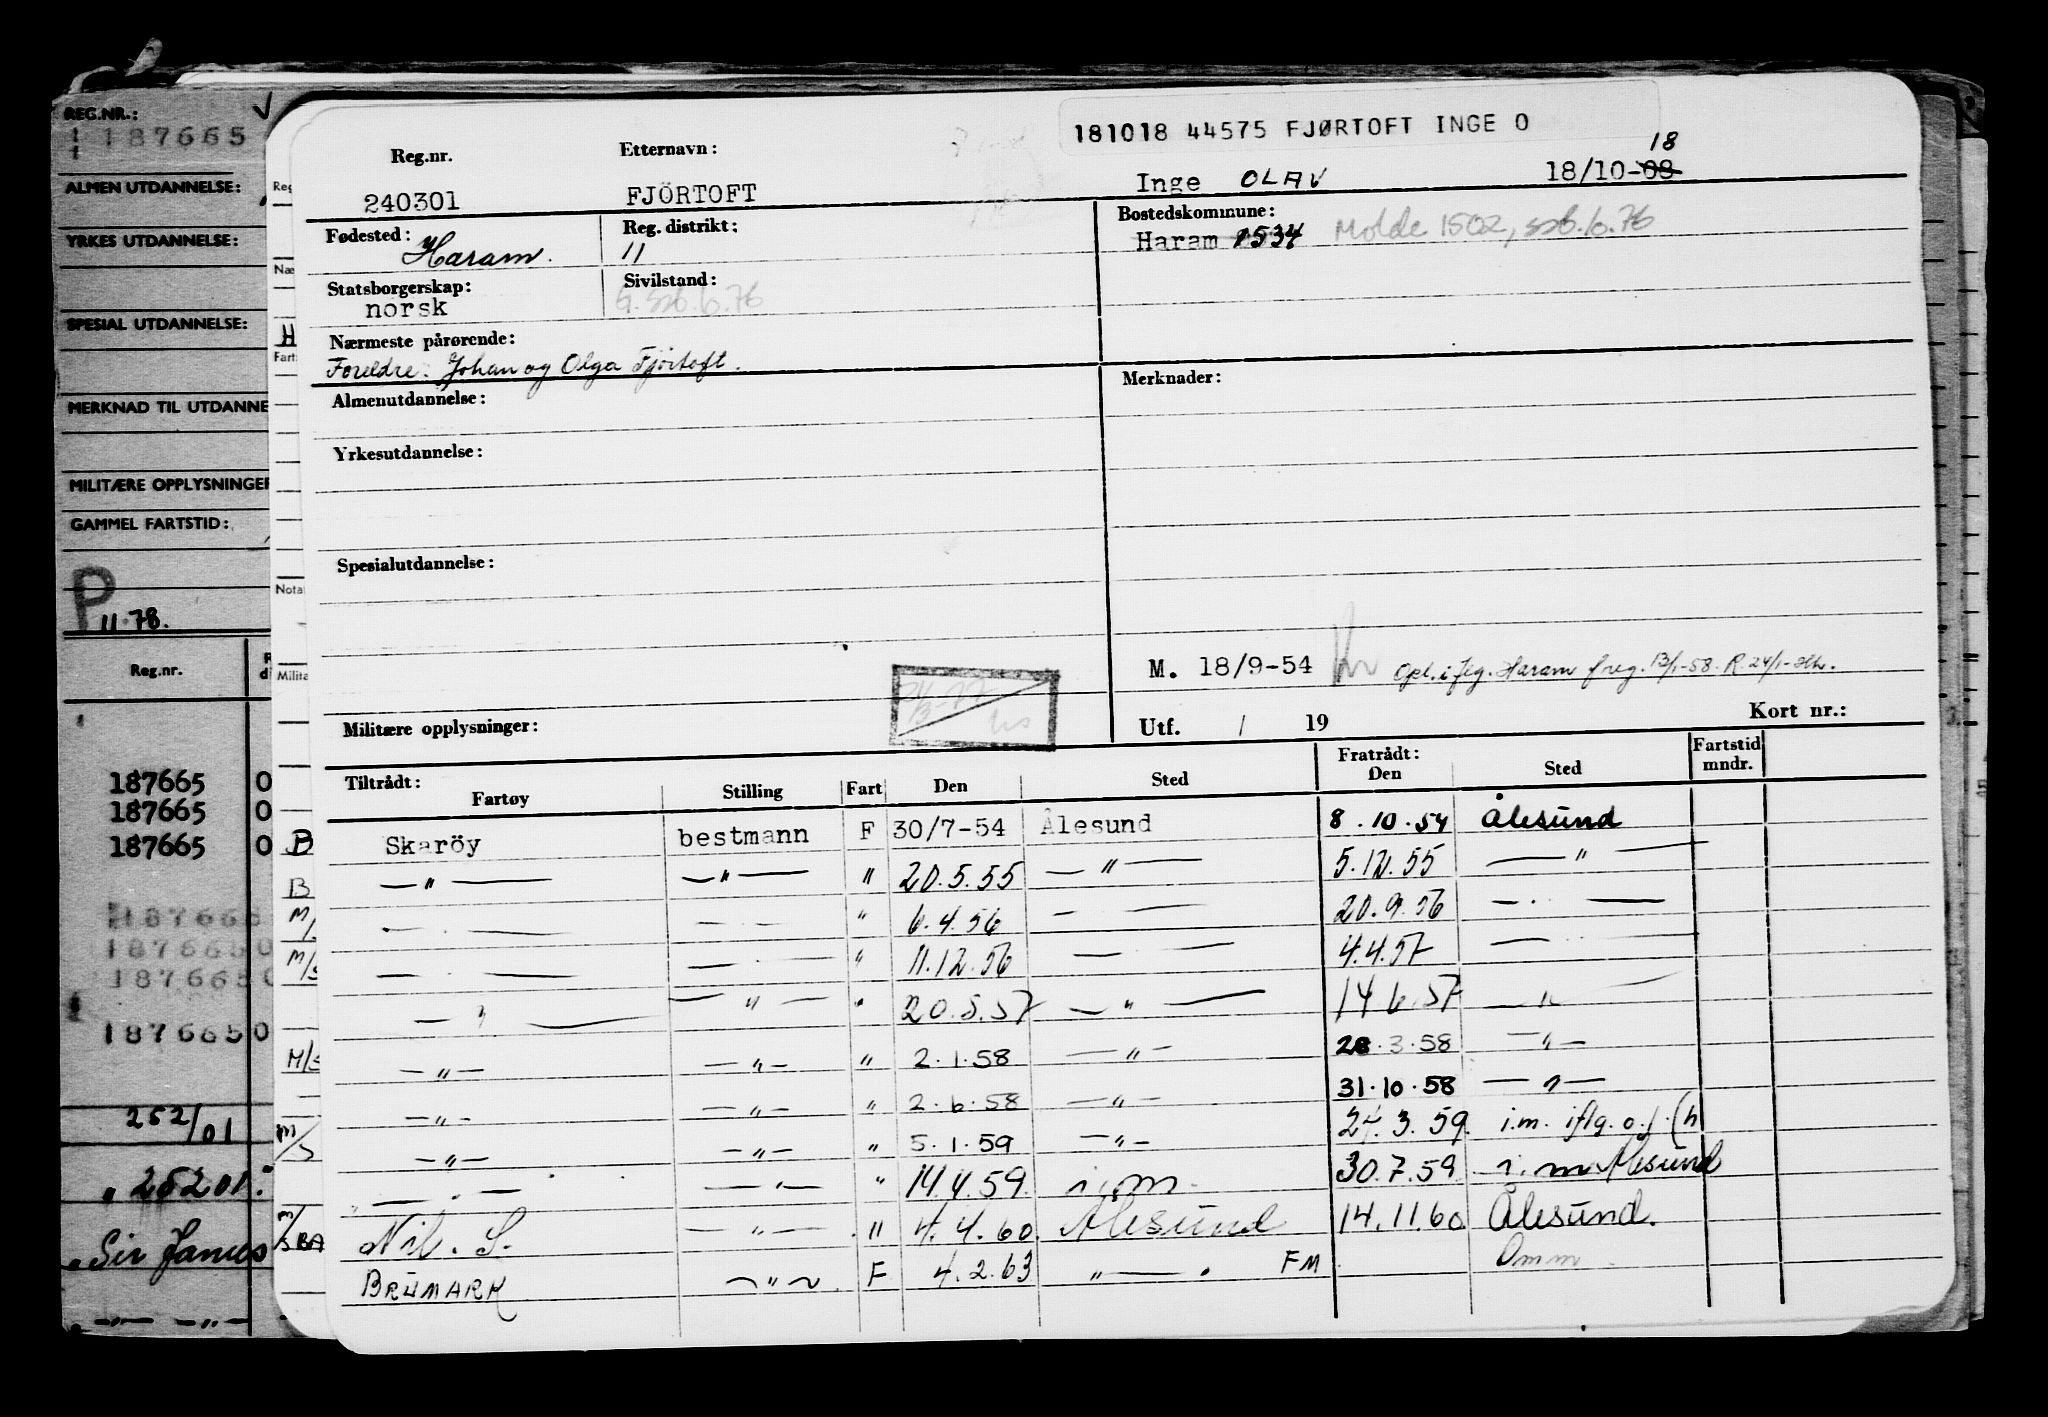 REG.NR.:
187665
ALMEN UTDANNELSE:
YRKES UTDANNELSE:
SPESIAL UTDANNELSE:
MERKNAD TIL UTDANNE
MILITÆRE OPPLYSNINGER
GAMMEL FARTSTID:
P
11-78.
Reg.nr.
187665 0
187665 0
187665 0
187665
1876650
1876650
1876650
252/01
" 25201:
" Sir James
Reg
Næ
H
Fart
Nota
Milita
B
B
M/
M/S
M/S
M/S
181018 44575 FJØRTOFT INGE O
Reg.nr. Etternavn: 18
240301 FJÖRTOFT Inge OLAV 18/10-08
Fødested: Reg. distrikt: Bostedskommune:
Haram. 11 Haram 1534 Molde 1502, ssb.6.76
Statsborgerskap: Sivilstand:
norsk G. ssb.6.76
Nærmeste pårørende:
Foreldre: Johan og Olga Fjörtoft.
Almenutdannelse: Merknader:
Yrkesutdannelse:
Spesialutdannelse:
M. 18/9-54 Opl. i flg. Haram freg. 13/1-58. R. 24/1-
Militære opplysninger: Utf. / 19 Kort nr.:
Tiltrådt: Fratrådt: Fartstid
Fartøy Stilling Fart Den Sted Den Sted mndr.
Skaröy bestmann F 30/7-54 Ålesund 8.10.54 Ålesund
— " — — " — " 20.5.55 — " — 5.12.55 — " —
— " — — " — " 6.4.56 — — 20.9.56 — . —
— . — — . — " 11.12.56 — — 4.4.57 — —
— " — — " — " 20.5.57 — " — 14.6.57 — " —
— " — — " — " 2.1.58 — " — 28.3.58 — " —
— " — — " — " 2.6.58 — " — 31.10.58 — " —
— " — — " — " 5.1.59 — " — 24.3.59. i.m. iflg. o.f. (h
— . — — " — " 14.4.59. i.m. 30.7.59 i.m Ålesund
Nil. S. — " — " 4.4.60. Ålesund 14.11.60 Ålesund.
BRUMARK — " — F 4.2.63 " — . FM Omm